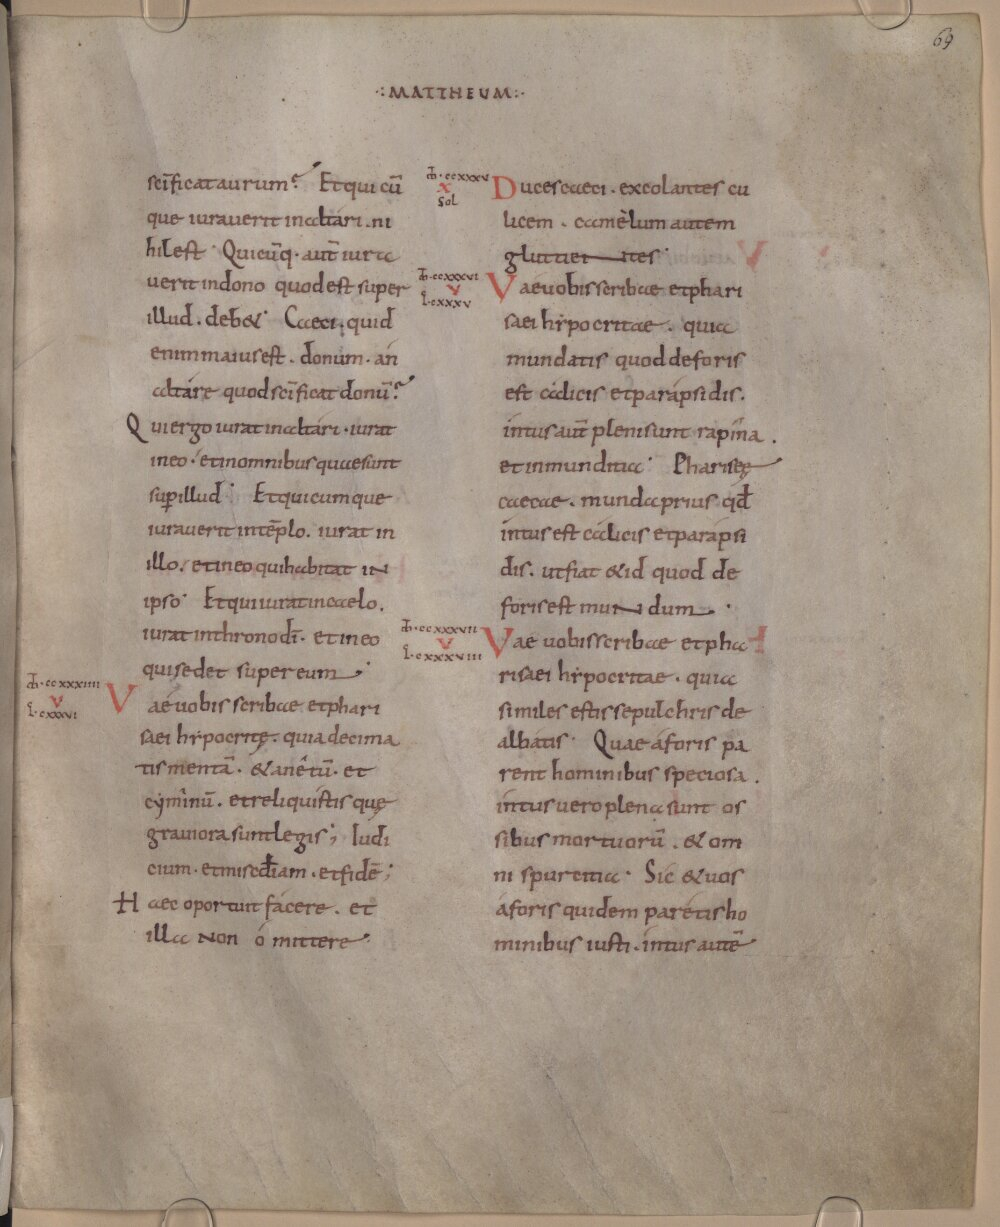 69
·:MATTHEUM:·
sc̄ificat aurum? Et qui cū
que iuraverit in altári . ni
hil est · Quicūq · aut̄ iura
verit in dono quod est super
illud . deb& · Caeci . quid
enim maius est . donum . an
altáre quod sc̄ificat donū?
Qui ergo iurat in altári . iurat
in eo . et in omnibus quae sunt
sup̄ illud · Et quicumque
iuraverit in tēplo . iurat in
illo . et in eo qui habitat iN
ipso · Et qui iurat in caelo .
iurat in throno dī . et in eo
qui sedet super eum ·
m̄ · ccxxxiiii
v
l · cxxxvi
Vae vobis scribae et phari
saei hẏpocritę . quia decima
tis mentā . & anêtū . et
cẏmînū . et reliquistis quę
graviora sunt legis ; Iudi
cium . et misc̄diam . et fidē ;
Haec oportuit fácere . et
illa Non ómittere ·
m̄ · ccxxxv
x
Sol
Duces caeci . excolantes cu
licem . camèlum autem
gluttientes ·
m̄ · ccxxxvi
v
l · cxxxv
Vae vobis scribae et phari
saei hẏpocritae . quia
mundatis quod deforis
est cálicis et parápsidis .
intus aut̄ pleni sunt rapína .
et inmunditia · Pharisęę
caecae . munda prius qđ
intus est cálicis et parápsi
dis . ut fiat & id quod de
foris est muNdum ·
m̄ · ccxxxvii
v
l · cxxxviii
Vae vobis scribae et pha
risaei hẏpocritae . quia
similes estis sepulchris de
albátis · Quae áforis pa
rent hominibus speciosa .
intus vero plena sunt os
sibus mortuorū . & om
ni spurcitia · Sic & vos
áforis quidem parétis ho
minibus iusti . intus autē